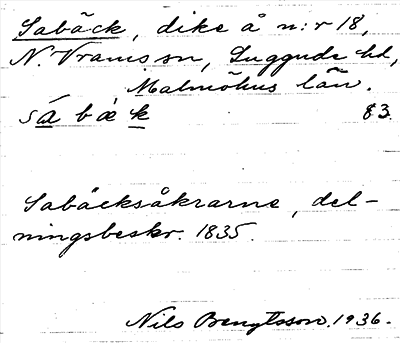 Sabäck, dike å n:r 18,
N. Vrams sn, Luggude hd,
Malmöhus län.
sá bæk 83.
Sabäcksåkrarne, del-
ningsbeskr. 1835.
Nils Bengtsson. 1936.